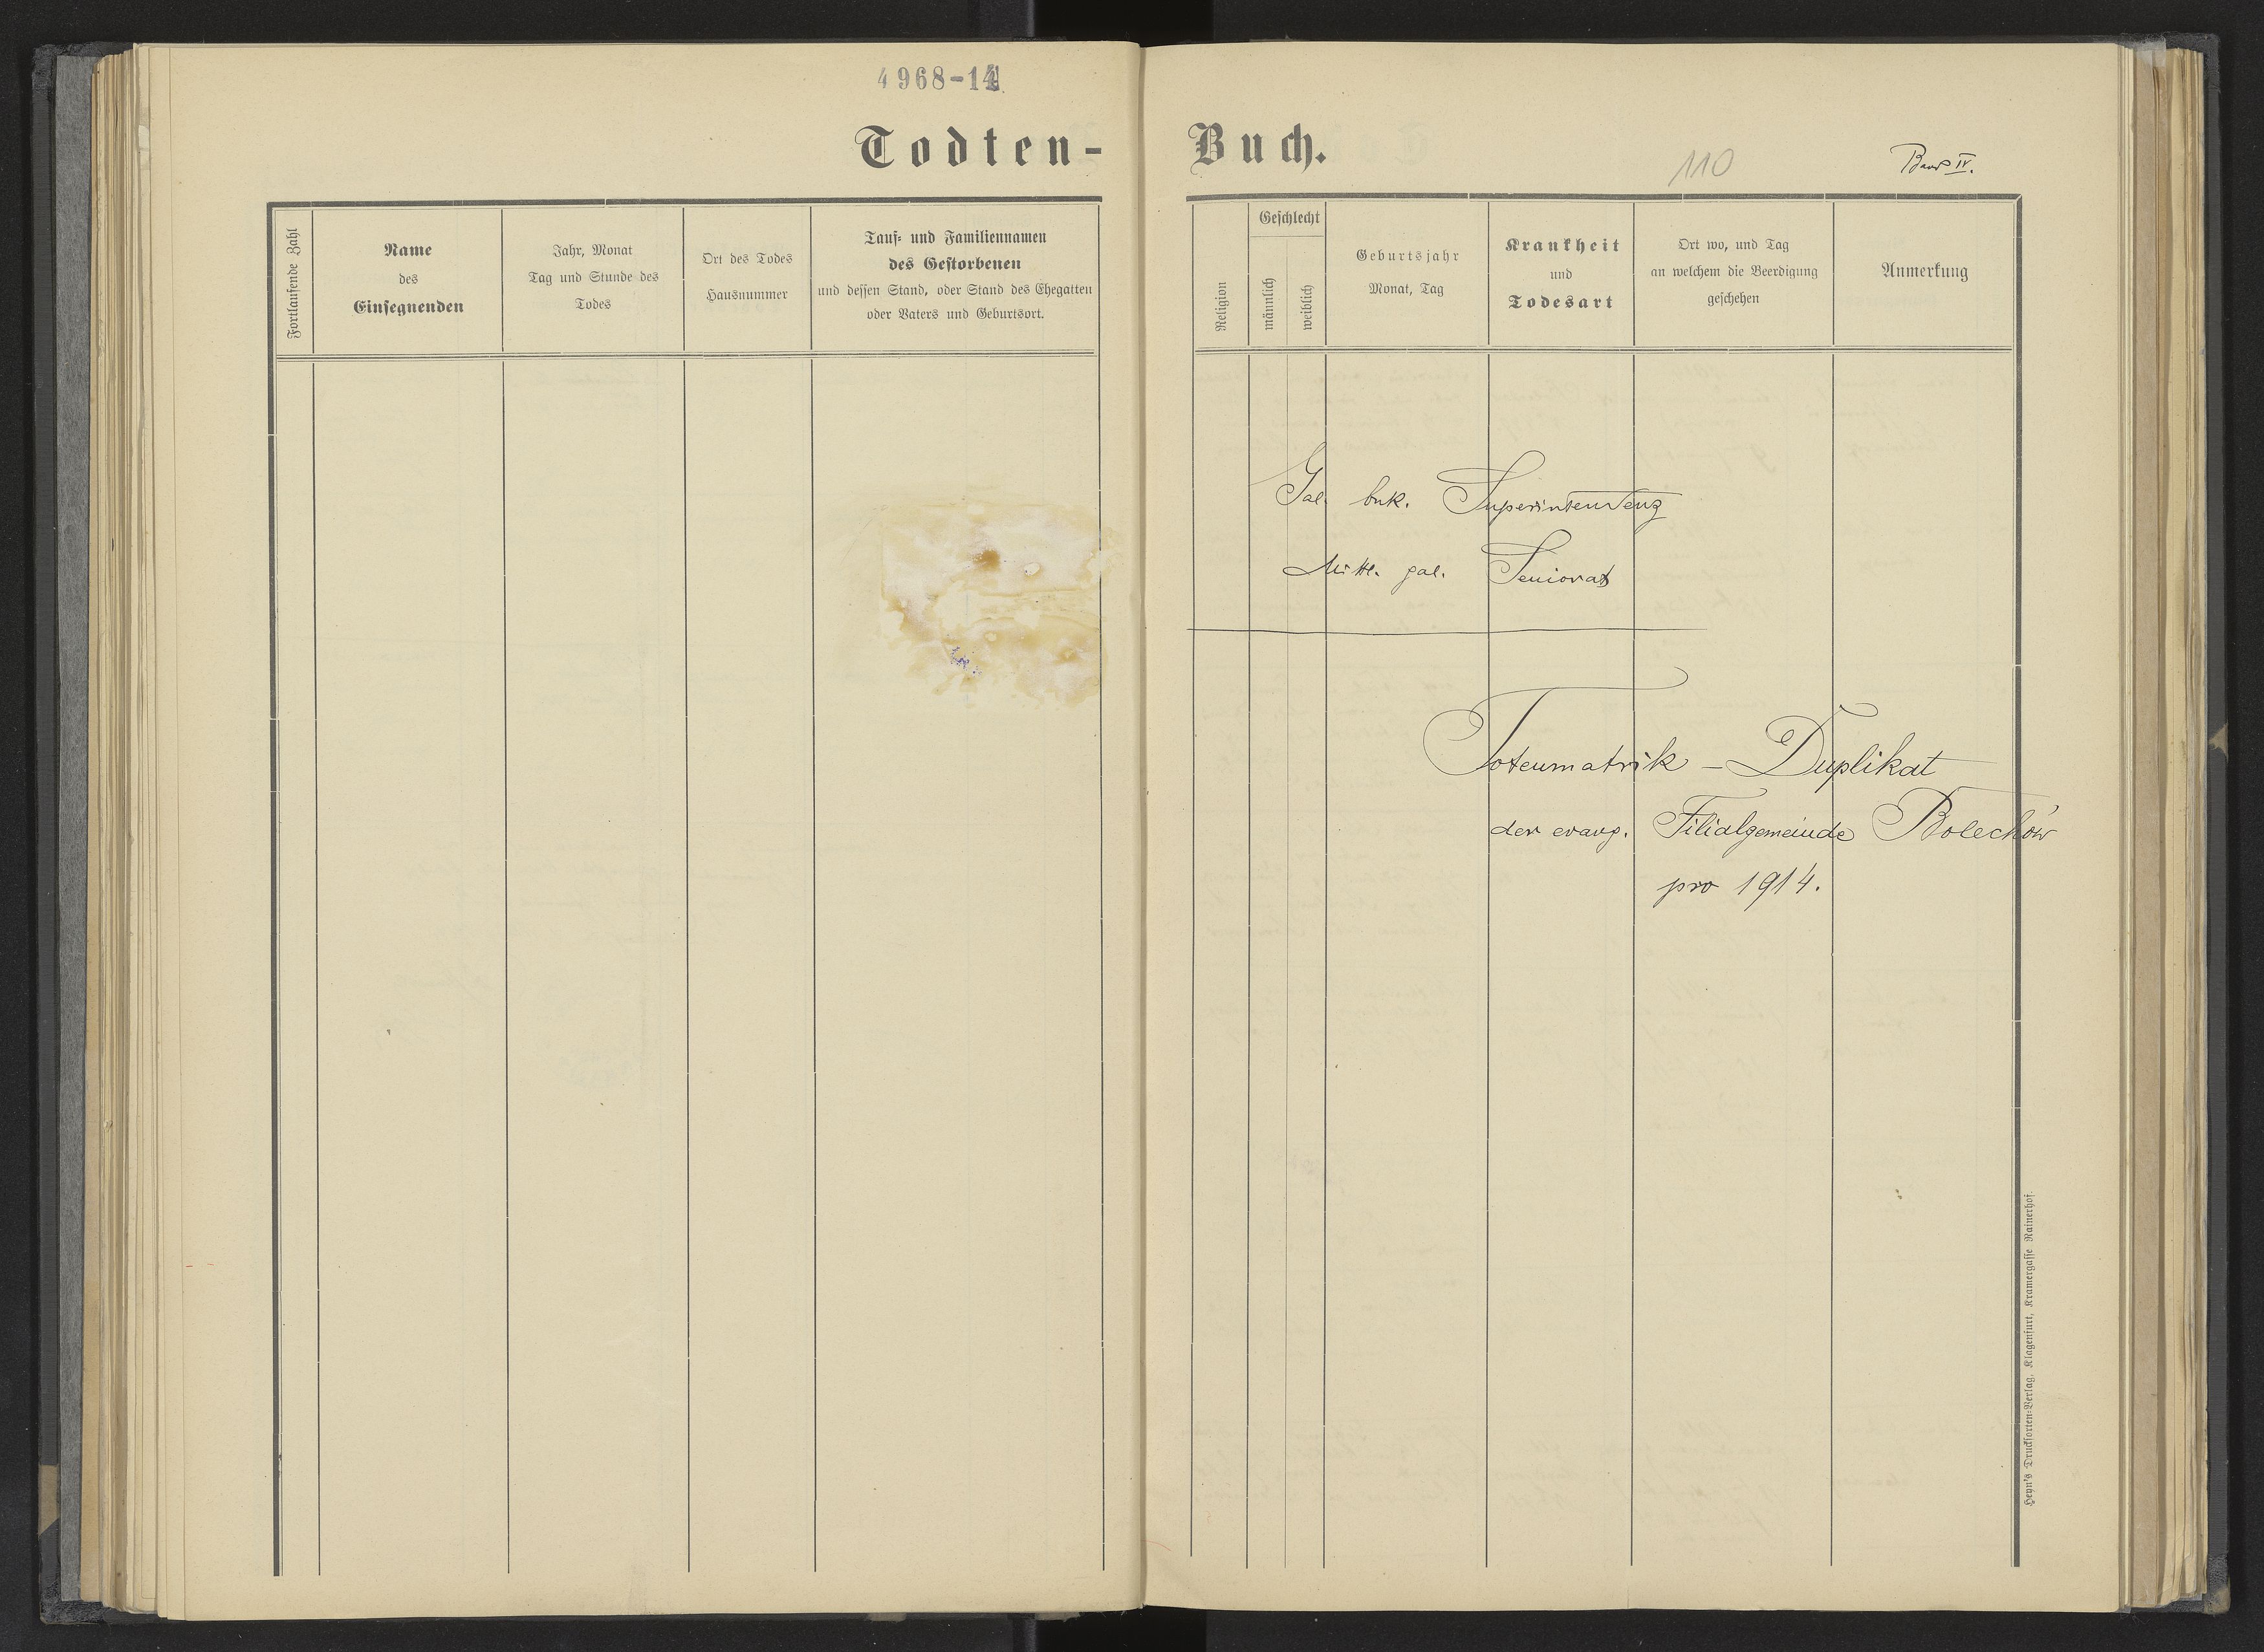 4968-14
Todten-
Fortlaufende Zahl
Name
des
Einsegnenden
Jahr, Monat
Tag und Stunde des
Todes
Ort des Todes
Hausnummer
Tauf- und Familiennamen
des Gestorbenen
und dessen Stand, oder Stand des Ehegatten
oder Vaters und Geburtsort.
Buch.
110
Band IV.
Religion
Geschlecht
männlich
weiblich
Geburtsjahr
Monat, Tag
Krankheit
und
Todesart
Ort wo, und Tag
an welchem die Beerdigung
geschehen
Anmerkung
Gal. buk. Superintendenz
Mittl. gal. Seniorat
Totenmatrik - Duplikat
der evang. Filialgemeinde Bolechów
pro 1914.
Heyn's Drucksorten-Verlag, Klagenfurt, Kramergasse Rainerhof.